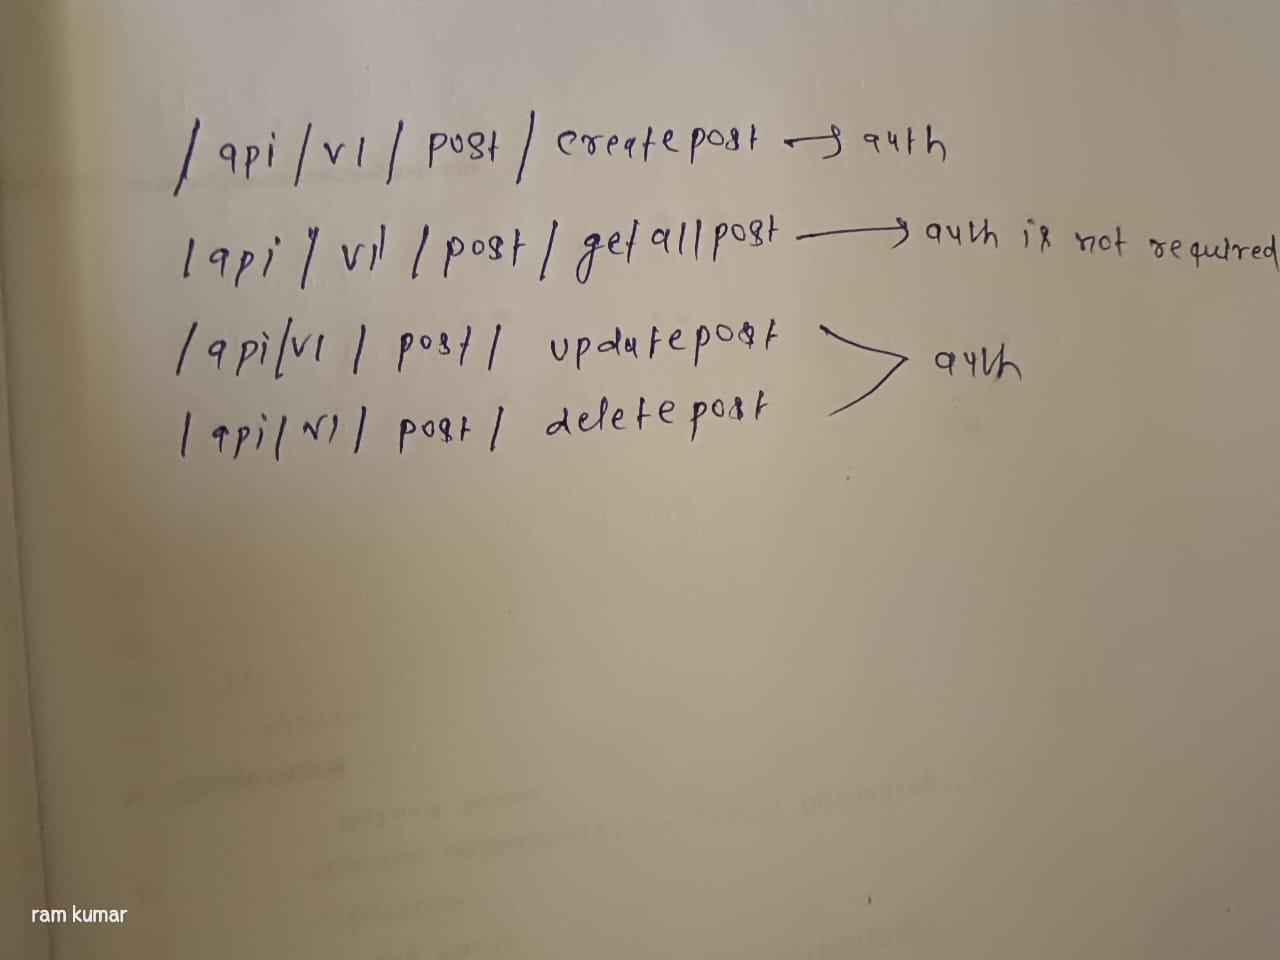 / api / v1 / post / createpost → auth
/ api / v1 / post / getallpost → auth is not required
/ api / v1 / post / updatepost
auth
/ api / v1 / post / deletepost
ram kumar